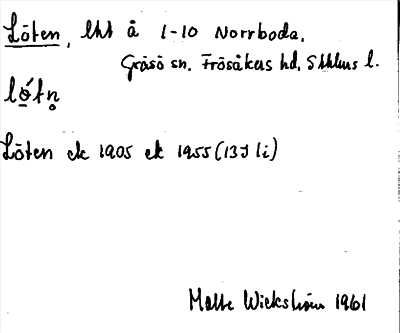 Löten, lht å 1-10 Norrboda.
Gräsö sn. Frösåkers hd, Sthlms l.
Löten ek 1905 ek 1955 (13J li)
Malte Wickström 1961